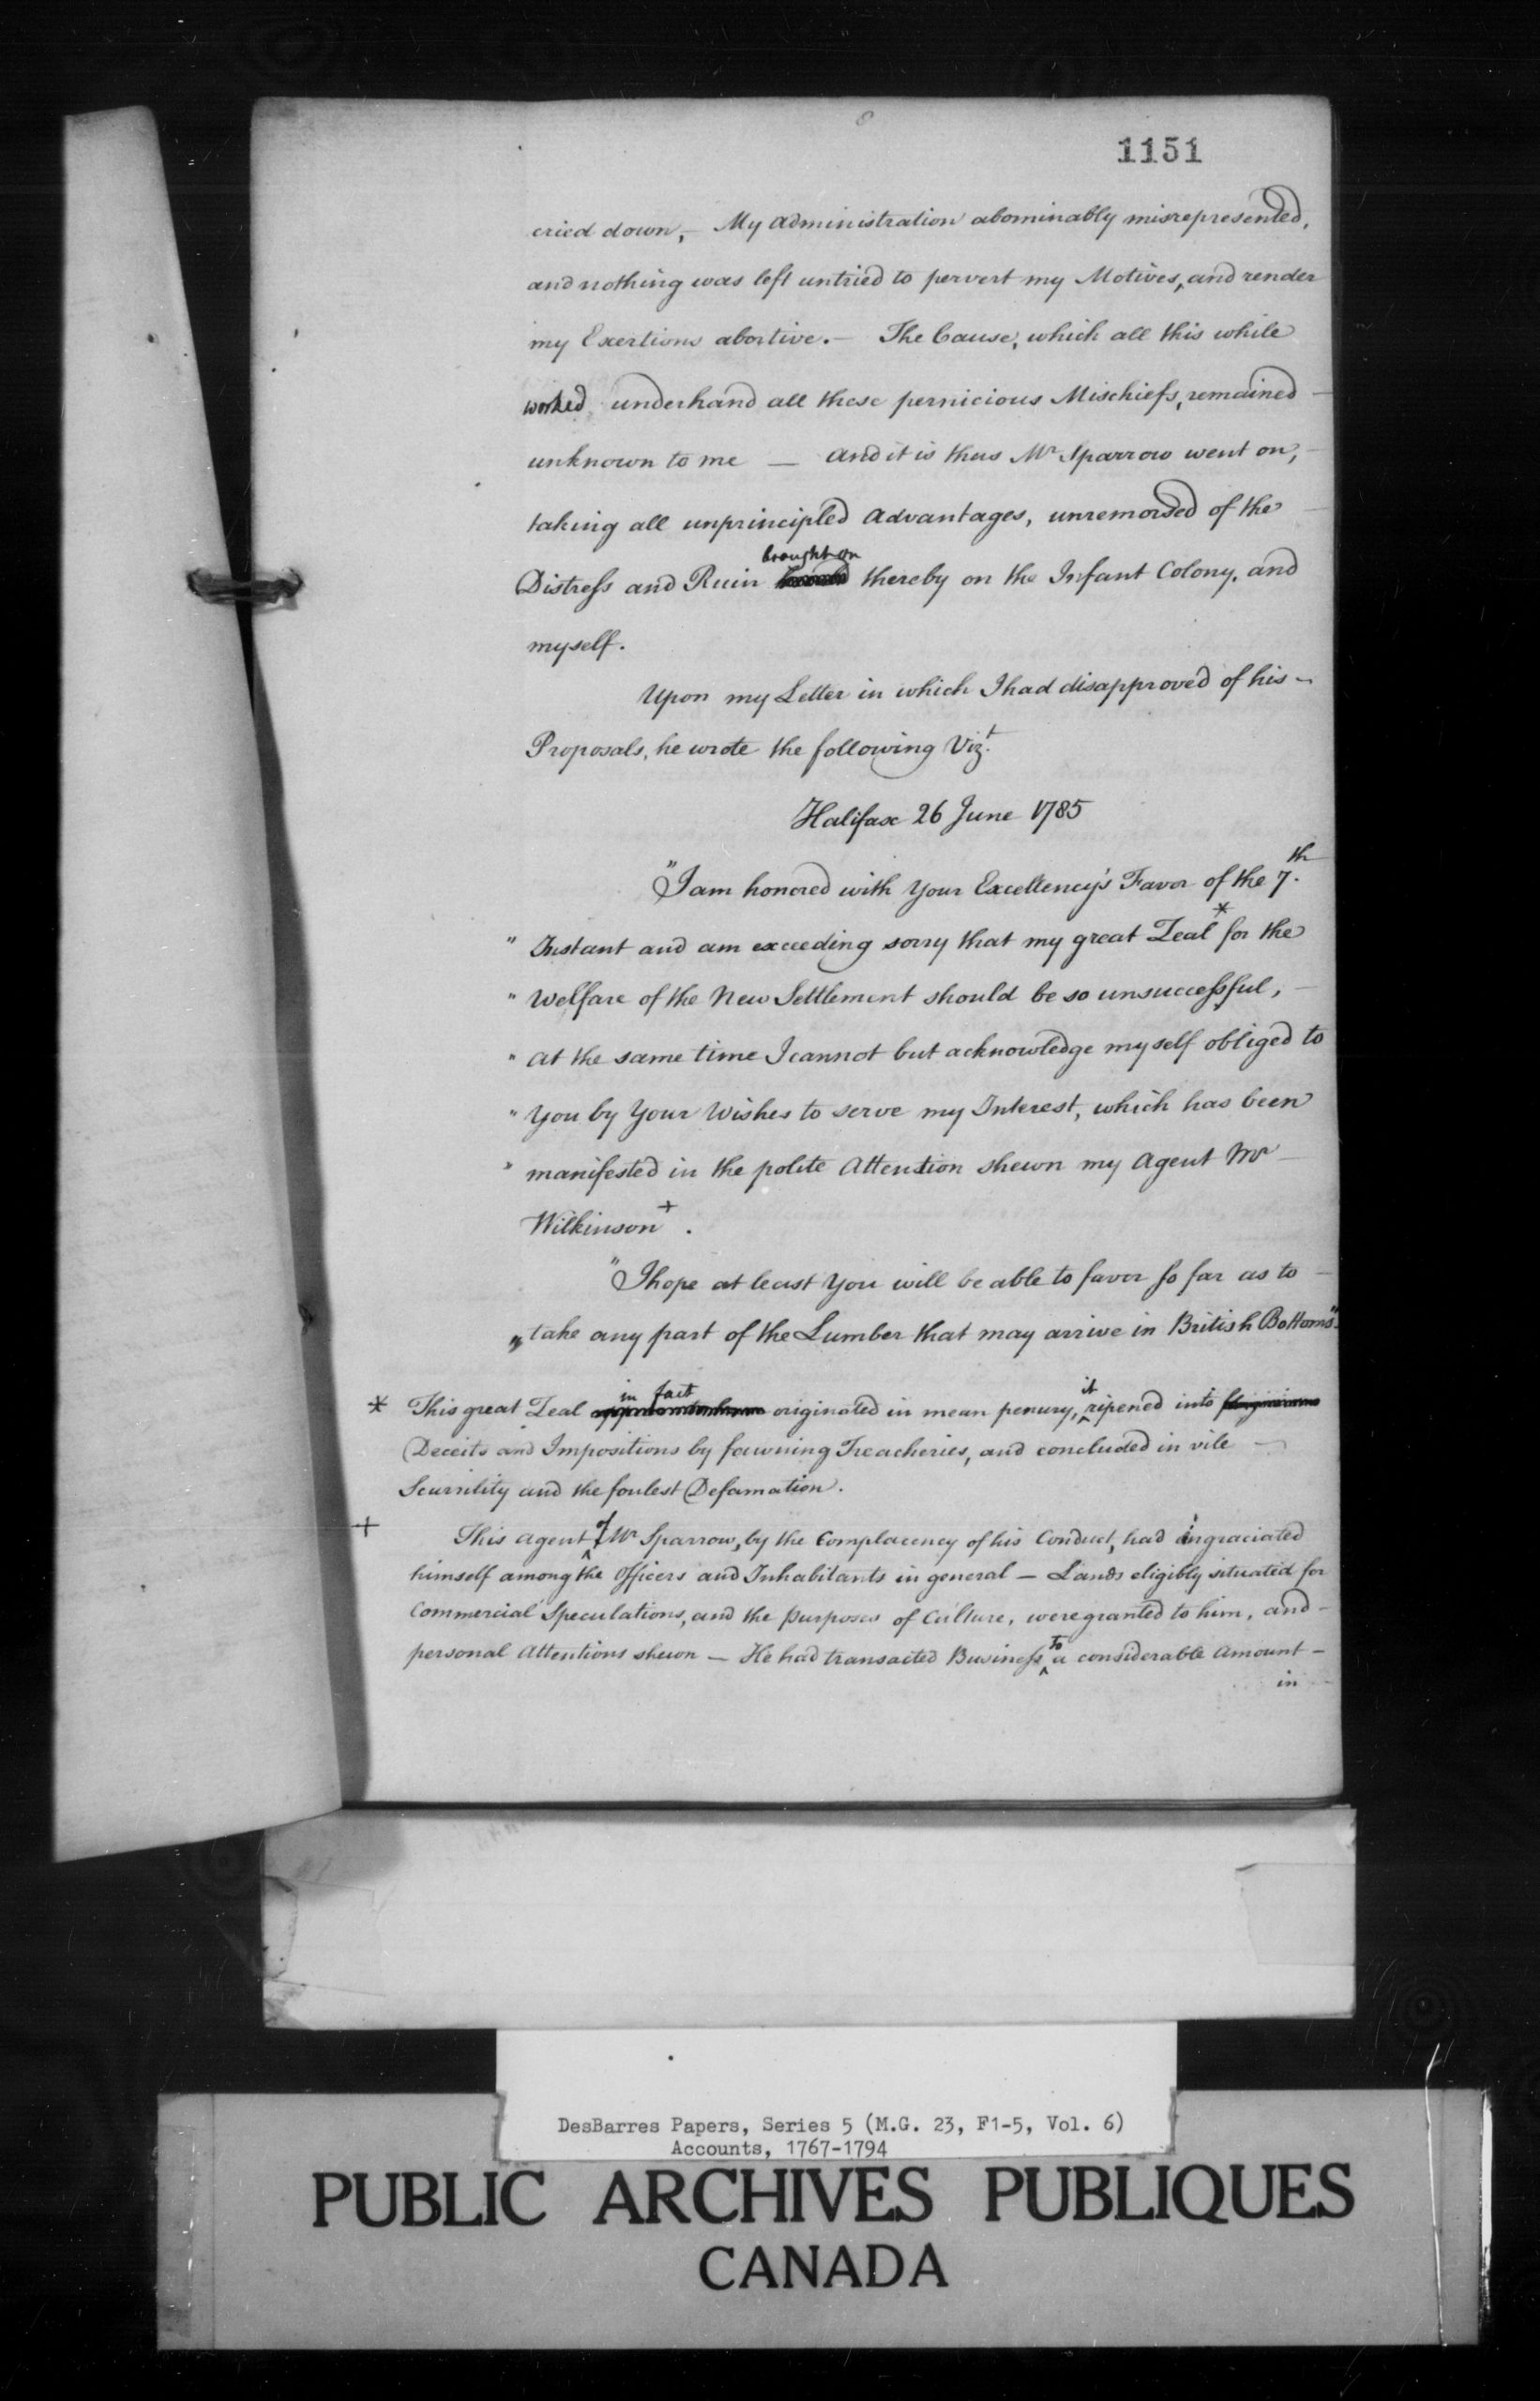 8
1151
cried down, - My Administration abominably misrepresented,
and nothing was left untried to pervert my Motives, and render
my Exertions abortive. - The Cause, which all this while
worked underhand all these pernicious Mischiefs, remained -
unknown to me — and it is thus Mr Sparrow went on, -
taking all unprincipled Advantages, unremorsed of the -
brought on
Distress and Ruin thereby on the Infant Colony, and
myself.
Upon my Letter in which I had disapproved of his -
Proposals, he wrote the following Vizt.
Halifax 26 June 1785
"I am honored with Your Excellency's Favor of the 7.th
" Instant and am exceeding sorry that my great Zeal* for the
" Welfare of the New Settlement should be so unsuccessful, -
" at the same time I cannot but acknowledge myself obliged to
" You by Your Wishes to serve my Interest, which has been
" manifested in the polite Attention shewn my Agent Mr -
Wilkinson+.
"I hope at least You will be able to favor so far as to -
" take any part of the Lumber that may arrive in British Bottoms".
* This great Zeal in fact originated in mean penury, it ripened into
Deceits and Impositions by fawning Treacheries, and concluded in vile -
Scurrility and the foulest Defamation.
+ This Agent of Mr Sparrow, by the Complacency of his Conduct, had ingraciated
himself among the Officers and Inhabitants in general - Lands eligibly situated for
Commercial Speculations, and the purposes of Culture, were granted to him, and -
personal Attentions shewn - He had transacted Business to a considerable Amount -
in
DesBarres Papers, Series 5 (M.G. 23, F1-5, Vol. 6)
Accounts, 1767-1794
PUBLIC ARCHIVES PUBLIQUES
CANADA